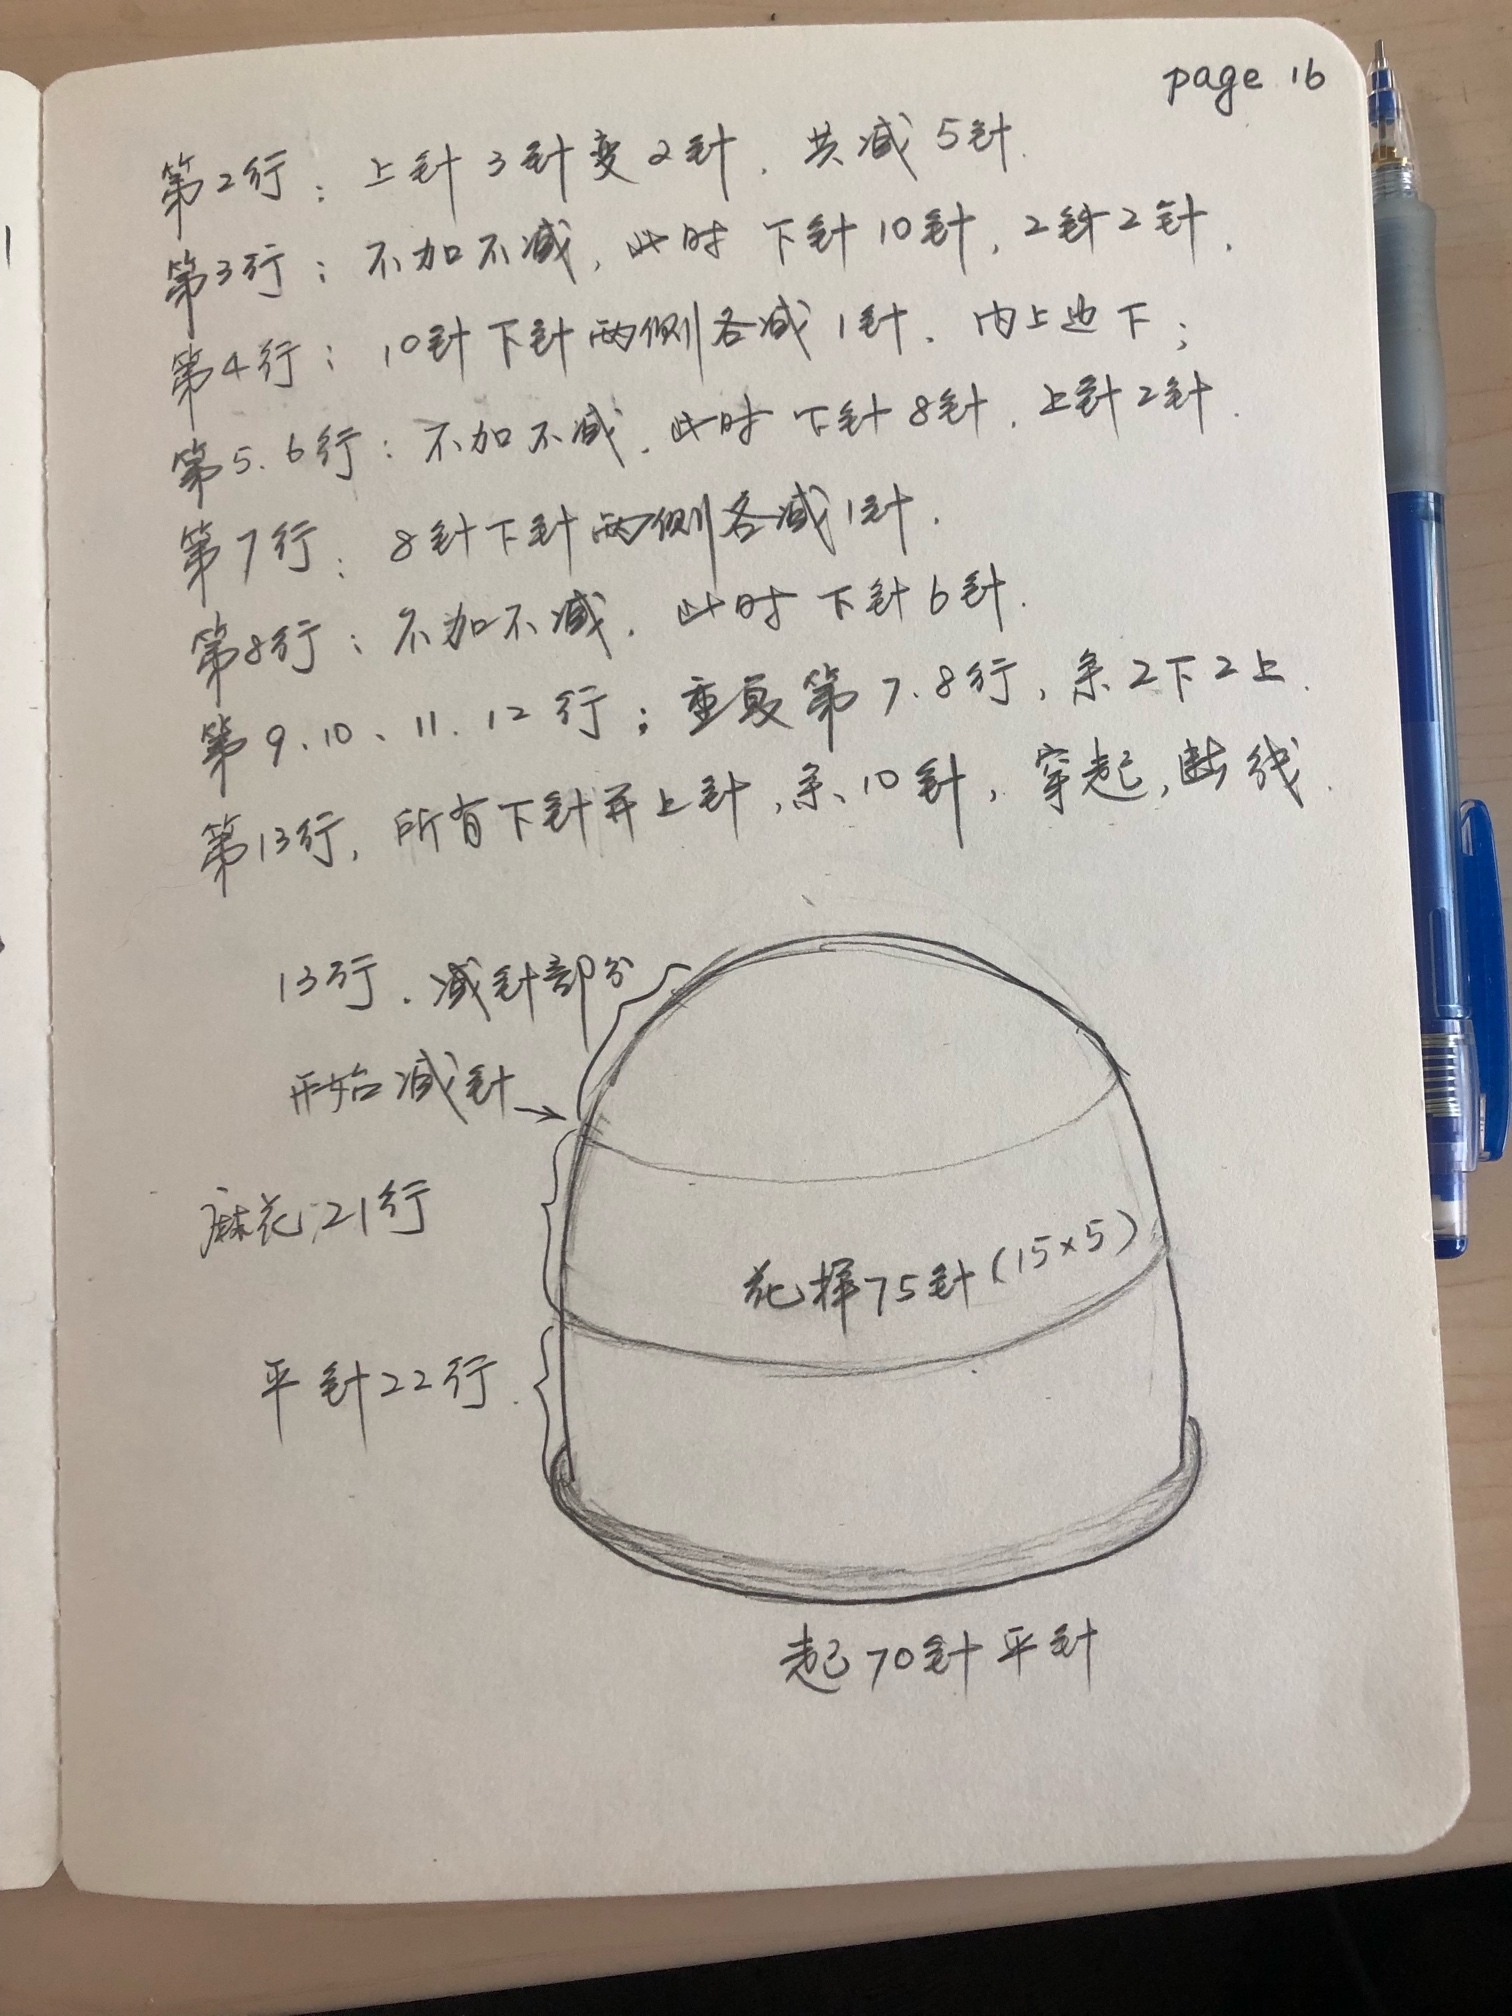 page 16
第2行：上针3针变2针，共减5针.
第3行：不加不减，此时下针10针，2针2针.
第4行：10针下针两侧各减1针，内上边下；
第5.6行：不加不减，此时下针8针，上针2针.
第7行：8针下针两侧各减1针.
第8行：不加不减，此时下针6针.
第9、10、11、12行；重复第7.8行，余2下2上.
第13行，所有下针并上针，余10针，穿起，断线.
13行.减针部分
开始减针
麻花21行
花样75针(15×5)
平针22行.
起70针平针